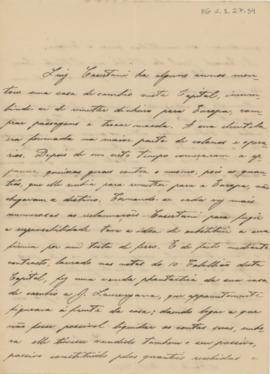 Luiz Caetani ha alguns annos mon-
tou uma casa de cambio nesta Capital, incum-
bindo-se de remetter dinheiro para Europa, com-
prar passagens e trocar moeda. A sua cliente-
la formada na maior parte de colonos e opera-
rios. Depois de um certo tempo começaram a ap-
parecer queixas geraes contra o mesmo, pois as quan-
tias, que elle recebia para remetter para a Europa, não
chegavam a destino. Tornando-se cada vez mais
numerosas as reclamações Caetani para fugir
a responsabilidade teve a idea de substituir a sua
firma por um testa de ferro. E de facto mediante
contracto, lavrado nas notas do 10 Tabellião desta
Capital, fez uma venda phantastica da sua casa
de cambio a J. que apparentemente
figurava á frente da casa; dando logo a que
não fosse possivel liquidar as contas suas, embo-
ra elle tivesse vendido tambem o seu passivo,
passivo constituido pelas quantias recebidas e